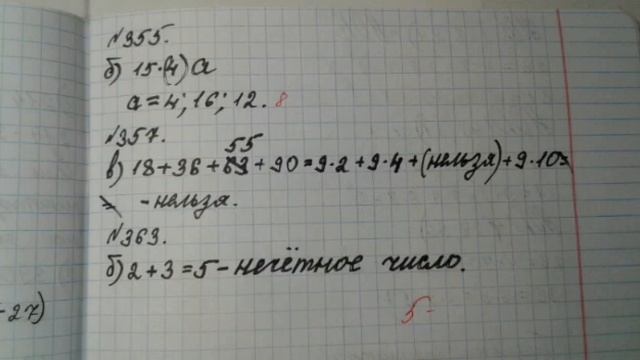 №355.
б) 15·(4) a
a = 4; 16; 12. 8
№357.
55
в) 18+36+63+90=9·2+9·4+(нельзя)+9·10=
= - нельзя.
№363.
б) 2+3=5 - нечётное число.
-27)
5-